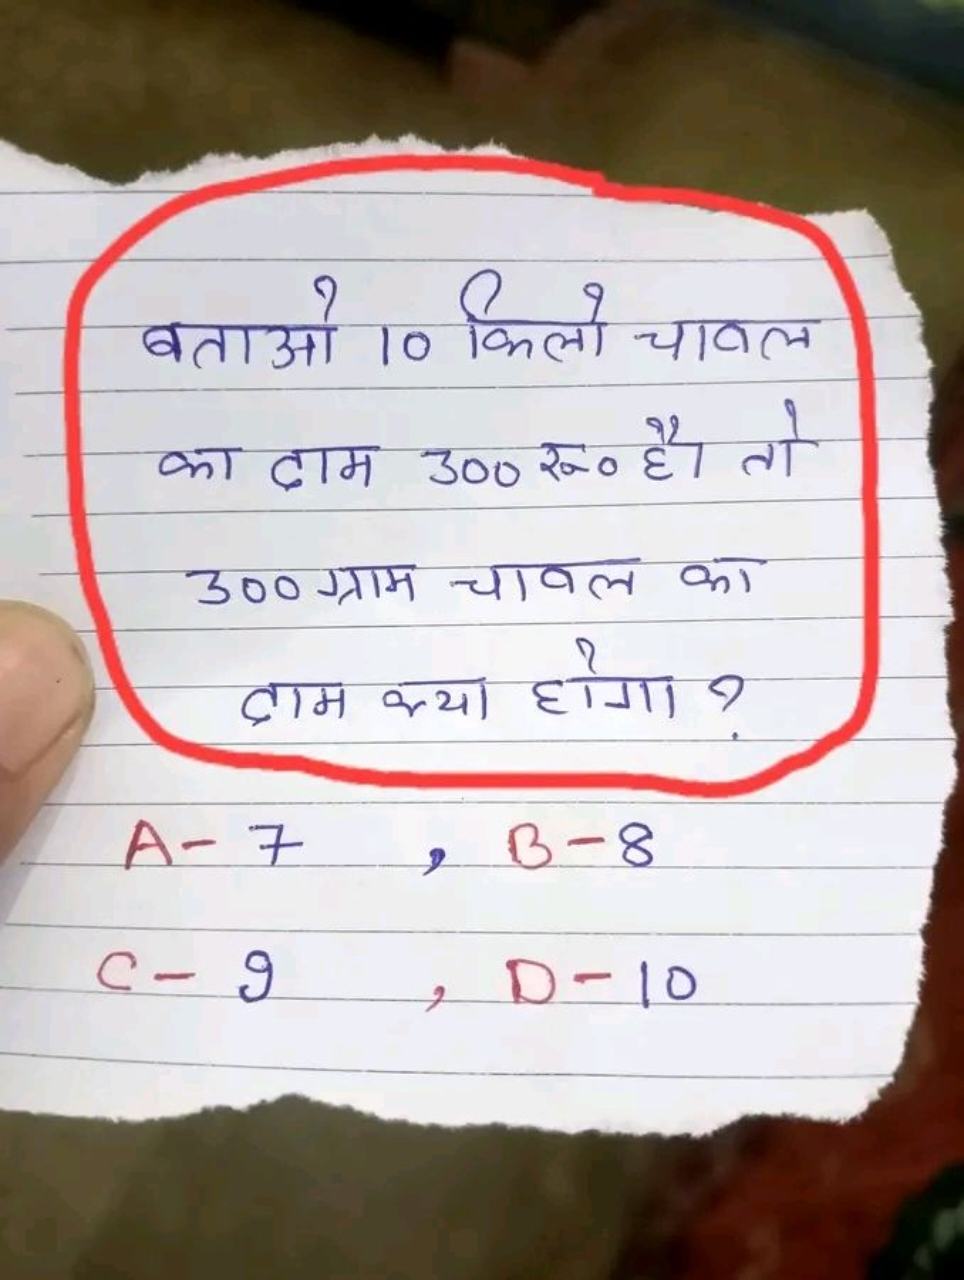 बताओ 10 किलो चावल
का दाम 300 रू० है। तो
300 ग्राम चावल का
दाम क्या होगा ?
A- 7 , B - 8
C - 9 , D - 10